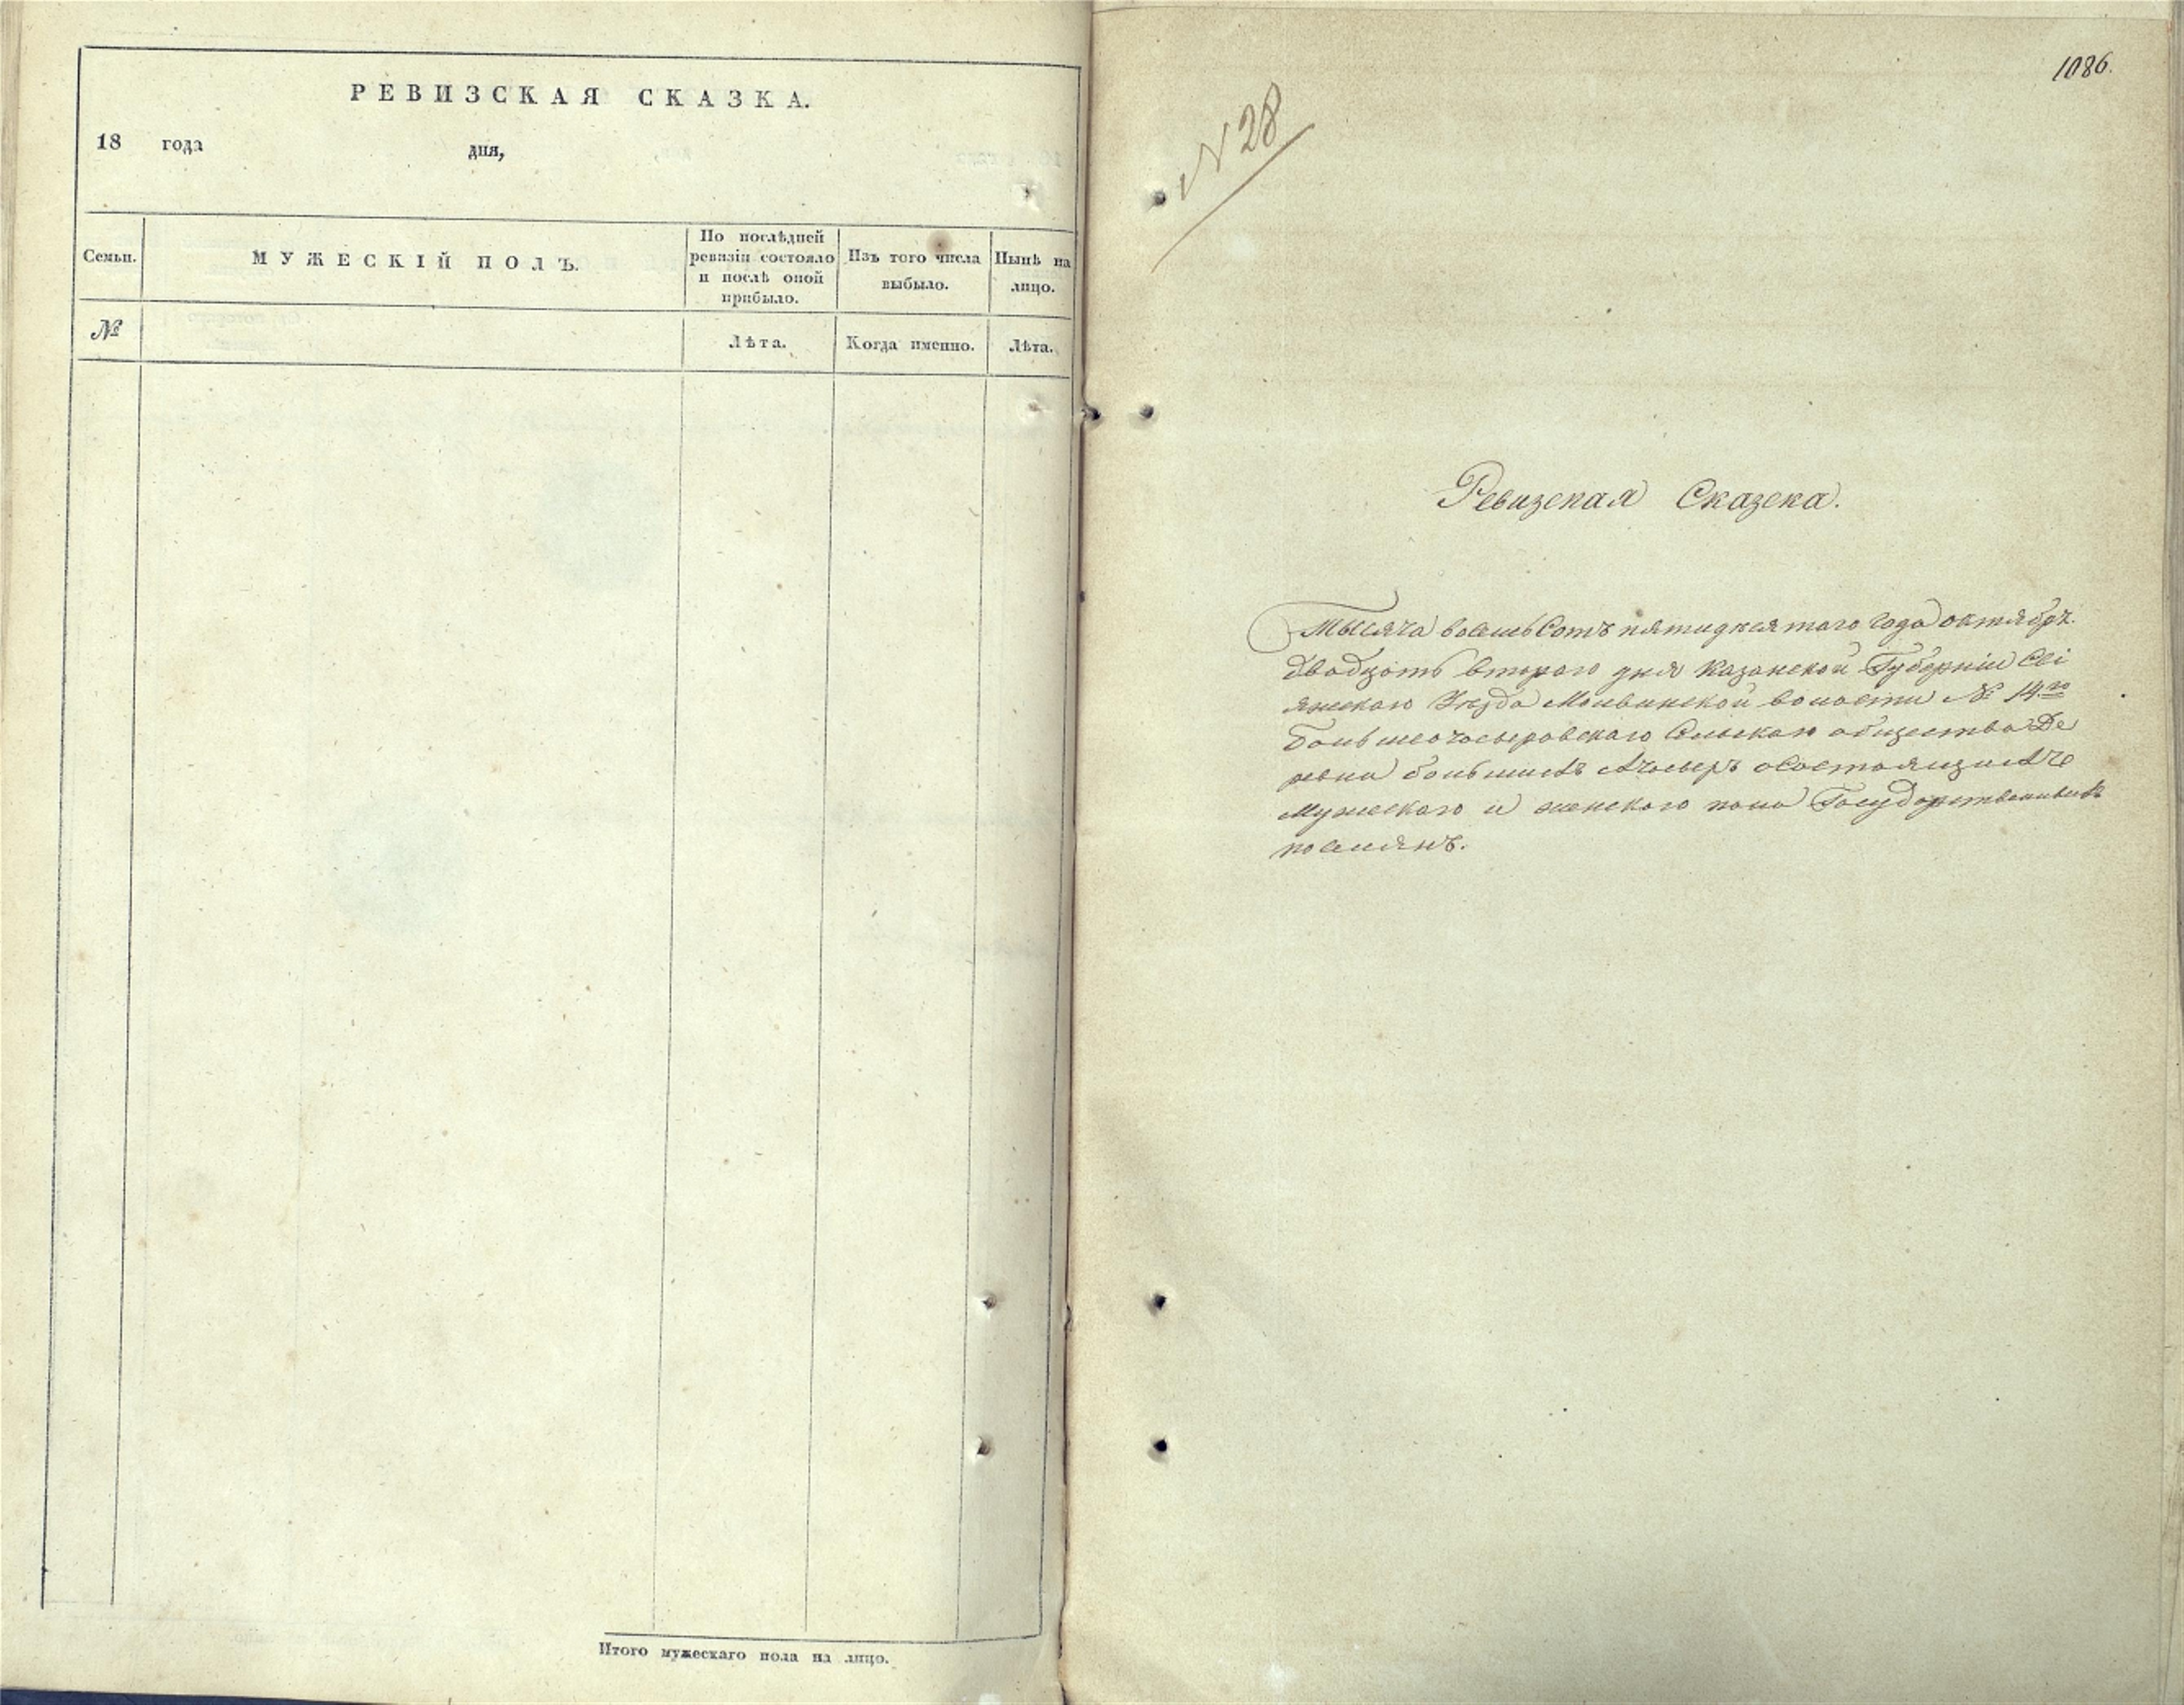 РЕВИЗСКАЯ СКАЗКА.
18 года дня,
Семьи.
МУЖЕСКІЙ ПОЛЪ.
По послѣдней
ревизіи состояло
и послѣ оной
прибыло.
Изъ того числа
выбыло.
Нынѣ на
лицо.
№
Лѣта.
Когда именно.
Лѣта.
Итого мужескаго пола на лицо.
1086.
N 28
Ревизская Сказска.
Тысяча восемьсотъ пятидесятаго года октябрь
двадцать втораго дня Казанской Губерніи Сві
яжскаго Уѣзда Молвинской волости № 14го
Большеочасыровскаго Сельскаго общества Де
ревни большихъ Ачасыръ осостоящихъ
Мужескаго и женскаго пола Государственныхъ
поселянъ.